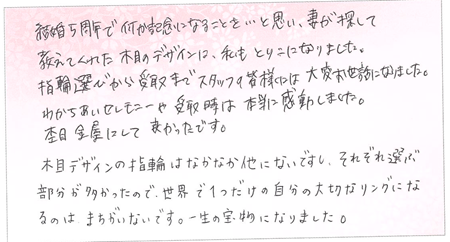 結婚5周年で何か記念になることを…と思い、妻が探して
教えてくれた木目のデザインに、私もとりこになりました。
指輪選びから受取までスタッフの皆様には大変お世話になりました。
わかちあいセレモニーや受取時は本当に感動しました。
杢目金屋にして良かったです。
木目デザインの指輪はなかなか他にないですし、それぞれ選ぶ
部分が多かったので、世界で1つだけの自分の大切なリングにな
るのは、まちがいないです。一生の宝物になりました。